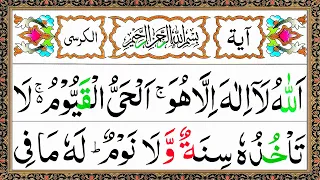 آية بِسْمِ اللهِ الرَّحْمٰنِ الرَّحِيْمِ الكرسى
اَللّٰهُ لَاۤ اِلٰهَ اِلَّا هُوَ ۚ اَلْحَىُّ الْقَيُّوْمُ ۚ لَا
تَاْخُذُهٗ سِنَةٌ وَّلَا نَوْمٌ ؕ لَهٗ مَا فِى